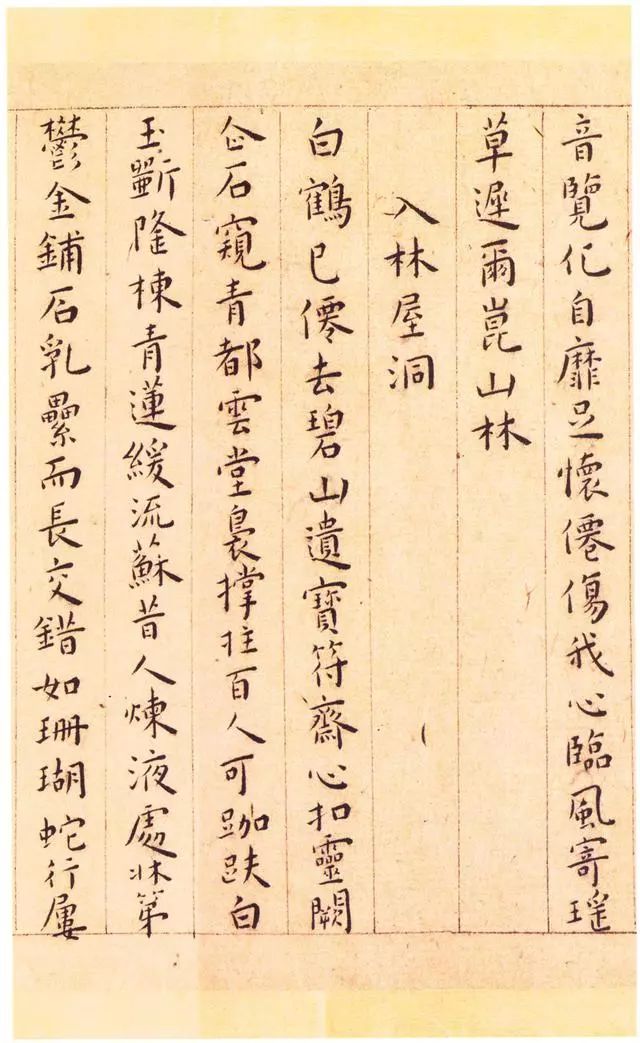 音覽化自靡足懷僊傷我心臨風寄瑤
草遲爾崑山林
入林屋洞
白鶴已僊去碧山遺寶符齋心扣靈闕
企石窺青都雲堂裊撐拄百人可跏趺白
玉斸隆棟青蓮緩流蘇昔人煉液處牀第
鬱金鋪石乳纍而長交錯如珊瑚蛇行屢